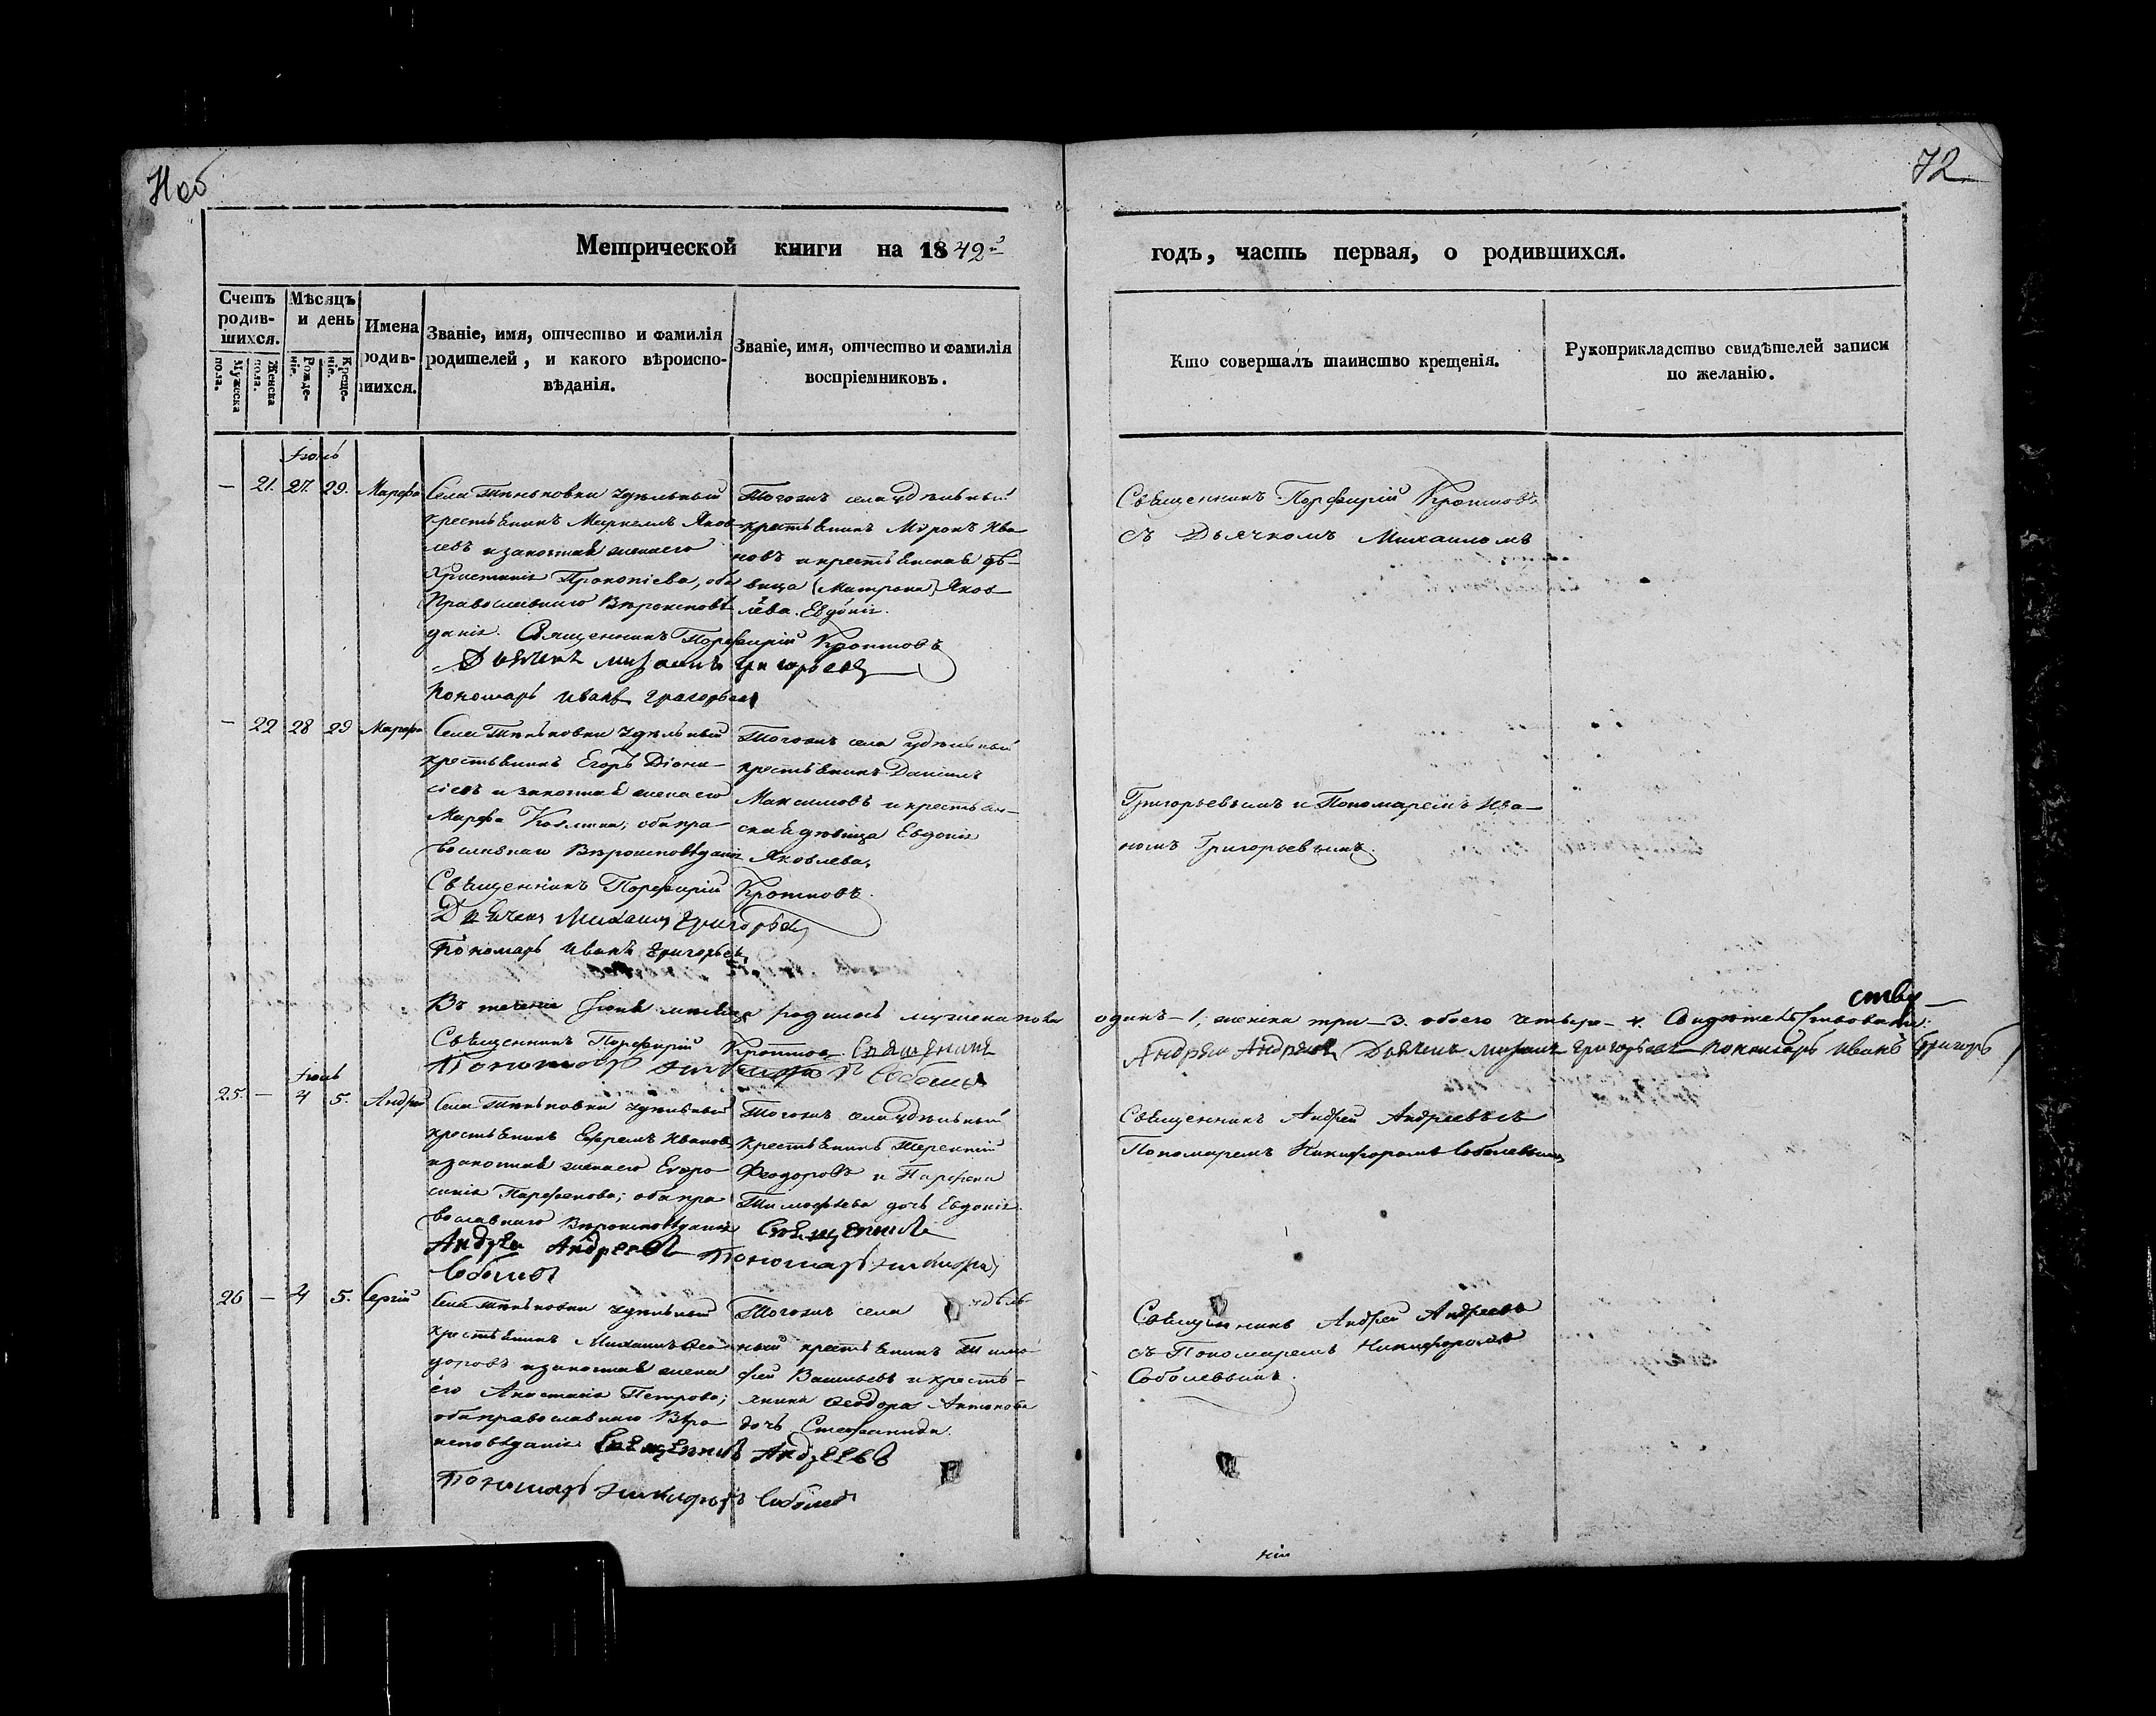 72
Метрической книги на 1842й
годъ, часть первая, о родившихся.
Счетъ родив-
шихся.
Мужеска пола.
Женска пола.
Мѣсяцъ
и день
Рожде-
ніе.
Креще-
ніе.
Имена
родив-
шихся.
Званіе, имя, отчество и фамилія
родителей, и какого вѣроиспо-
вѣданія.
Званіе, имя, отчество и фамилія
воспріемниковъ.
Кто совершалъ таинство крещенія.
Рукоприкладство свидѣтелей записи
по желанію.
Іюнь
— 21. 27. 29. Марфа
Села Тиньковки удѣльный
крестьянинъ Маркелъ Яков-
левъ и законная жена его
Христинія Прокопіева, оба
Православнаго Вѣроисповѣ
данія. Священникъ Порфирій Кротковъ
Дьячекъ Михаилъ Григорьевъ
Пономарь Иванъ Григорьевъ
Тогожъ села удѣльный
крестьянинъ Миронъ Ива
новъ и крестьянская дѣ-
вица (Матрона) Яков
лева. Евдокія.
Священникъ Порфирій Кротковъ
съ Дьячкомъ Михаиломъ
— 22 28 29 Марфа
Села Тиньковки удѣльный
крестьянинъ Егоръ Діони-
сіевъ и законная жена его
Марфа Козмина, оба пра-
вославнаго Вѣроисповѣданія
Священникъ Порфирій Кротковъ.
Дьячекъ Михаилъ Григорьевъ
Пономарь Иванъ Григорьевъ
Тогожъ села удѣльный
крестьянинъ Даніилъ
Максимовъ и крестьян-
ская дѣвица Евдокія
Яковлева,
Григорьевымъ и Пономаремъ Ива-
номъ Григорьевымъ.
Въ теченіе Іюня мѣсяца родилось мужеска пола одинъ — 1, женска три — 3. обоего четыре — 4. Свидѣтельствовали:
ству
Священникъ Порфирій Кротковъ Священникъ Андрей Андреевъ Дьячекъ Михаилъ Григорьевъ Пономарь Иванъ Григорь
Пономарь Никифоръ Соболевъ
Іюль
25. — 4 5. Андрей
Села Тиньковки удѣльный
крестьянинъ Ефремъ Ивановъ
и законная жена его Евфро
синія Парфенова; оба пра
вославнаго Вѣроисповѣданія Священникъ
Андрей Андреевъ Пономарь Никифоръ
Соболевъ
Тогожъ села удѣльный
крестьянинъ Терентій
Феодоровъ и Парфена
Тимофѣева дочь Евдокія.
Священникъ Андрей Андреевъ съ
Пономаремъ Никифоромъ Соболевымъ
26 — 4 5. Сергій
Села Тиньковки удѣльный
крестьянинъ Михаилъ Ѳео
доровъ и законная жена
его Анастасія Петрова;
оба православнаго Вѣро
исповѣданія Священникъ Андреевъ
Пономарь Никифоръ Соболевъ
Тогожъ села удѣль-
ный крестьянинъ Тимо
фей Васильевъ и кресть-
янина Ѳеодора Антонова
дочь Стефанида.
Священникъ Андрей Андреевъ
съ Пономаремъ Никифоромъ
Соболевымъ.